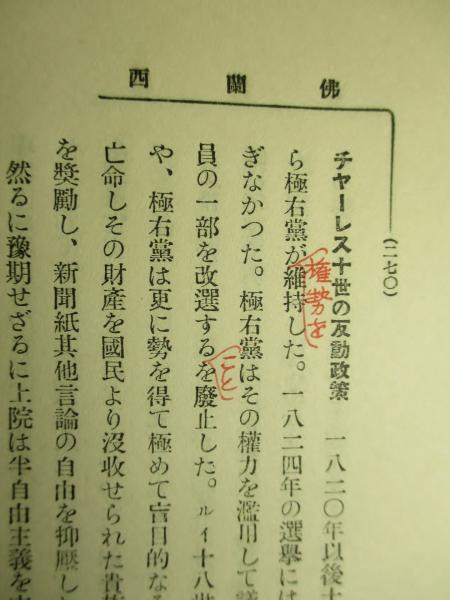 佛蘭西
(二七〇)
チャーレス十世の反動政策 一八二〇年以後十
ら極右黨が維持した。一八二四年の選擧には
權勢を
ぎなかつた。極右黨はその權力を濫用して議
員の一部を改選するを廢止した。ルイ十八世
こと
や、極右黨は更に勢を得て極めて盲目的なる
亡命しその財產を國民より沒收せられた貴族
を獎勵し、新聞紙其他言論の自由を抑壓し
然るに豫期せざるに上院は半自由主義を